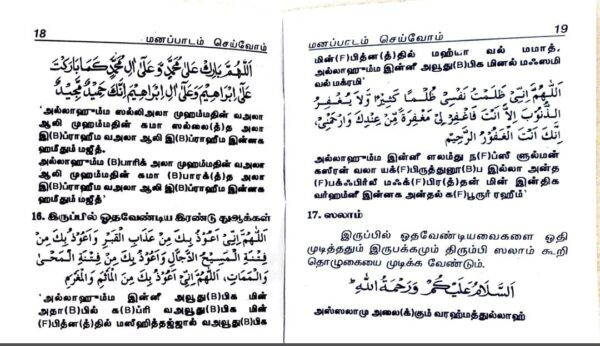 18
மனப்பாடம் செய்வோம்
اَللّٰهُمَّ بَارِكْ عَلٰى مُحَمَّدٍ وَّعَلٰى اٰلِ مُحَمَّدٍ كَمَا بَارَكْتَ
عَلٰى اِبْرَاهِيْمَ وَعَلٰى اٰلِ اِبْرَاهِيْمَ اِنَّكَ حَمِيْدٌ مَّجِيْدٌ
'அல்லாஹும்ம ஸல்லிஅலா முஹம்மதின் வஅலா
ஆலி முஹம்மதின் கமா ஸல்லை(த்)த அலா
இ(B)ப்ராஹீம வஅலா ஆலி இ(B)ப்ராஹீம இன்னக
ஹமீதும் மஜீத்.
அல்லாஹும்ம (B)பாரிக் அலா முஹம்மதின் வஅலா
ஆலி முஹம்மதின் கமா (B)பாரக்(த்)த அலா
இ(B)ப்ராஹீம வஅலா ஆலி இ(B)ப்ராஹீம இன்னக
ஹமீதும் மஜீத்'
16. இருப்பில் ஓதவேண்டிய இரண்டு துஆக்கள்
اَللّٰهُمَّ اِنِّيْ اَعُوْذُ بِكَ مِنْ عَذَابِ الْقَبْرِ وَاَعُوْذُ بِكَ مِنْ
فِتْنَةِ الْمَسِيْحِ الدَّجَّالِ وَاَعُوْذُ بِكَ مِنْ فِتْنَةِ الْمَحْيَا
وَالْمَمَاتِ، اَللّٰهُمَّ اِنِّيْ اَعُوْذُ بِكَ مِنَ الْمَأْثَمِ وَالْمَغْرَمِ
'அல்லாஹும்ம இன்னீ அவூது(B)பிக மின்
அதா(B)பில் க(B)ப்ரி வஅவூது(B)பிக மின்
(F)பித்ன(த்)தில் மஸீஹித்தஜ்ஜால் வஅவூது(B)பிக
19
மனப்பாடம் செய்வோம்
மின்(F)பித்ன(த்)தில் மஹ்யா வல் மமாத்,
அல்லாஹும்ம இன்னீ அவூது(B)பிக மினல் மஃஸமி
வல் மக்ரமி'
اَللّٰهُمَّ اِنِّيْ ظَلَمْتُ نَفْسِيْ ظُلْمًا كَثِيْرًا وَّلَا يَغْفِرُ
الذُّنُوْبَ اِلَّا اَنْتَ فَاغْفِرْ لِيْ مَغْفِرَةً مِّنْ عِنْدِكَ وَارْحَمْنِيْ
اِنَّكَ اَنْتَ الْغَفُوْرُ الرَّحِيْمُ
அல்லாஹும்ம இன்னீ ளலம்து ந(F)ப்ஸீ ளுல்மன்
கஸீரன் வலா யக்(F)பிருத்துனூ(B)ப இல்லா அன்த
(F)பக்ஃபிர்லீ மஃக்(F)பிர(த்)தன் மின் இன்திக
வர்ஹம்னீ இன்னக அன்தல் க(F)பூருர் ரஹீம்'
17. ஸலாம்
இருப்பில் ஓதவேண்டியவைகளை ஓதி
முடித்ததும் இருபக்கமும் திரும்பி ஸலாம் கூறி
தொழுகையை முடிக்க வேண்டும்.
اَلسَّلَامُ عَلَيْكُمْ وَرَحْمَةُ اللّٰهِ
அஸ்ஸலாமு அலை(க்)கும் வரஹ்மத்துல்லாஹ்